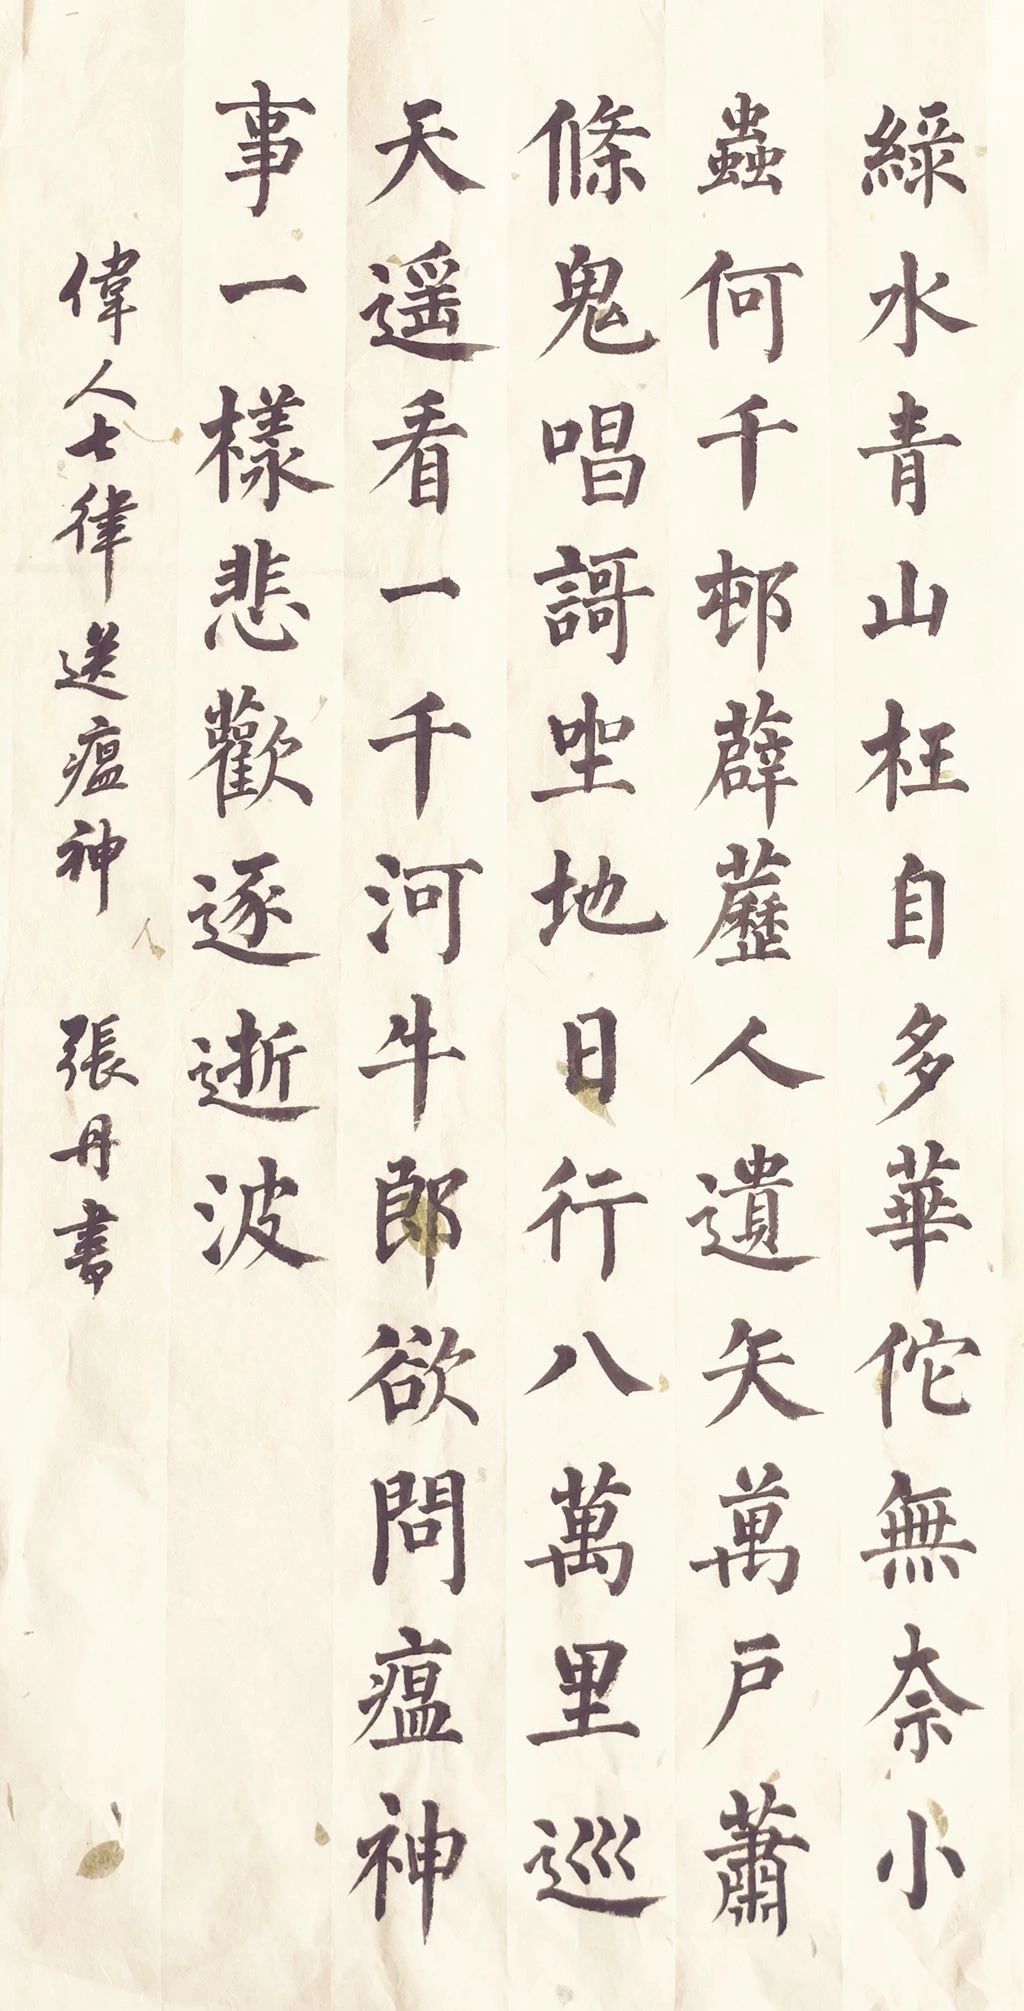 綠水青山枉自多華佗無奈小
蟲何千邨薜藶人遺矢萬戶蕭
條鬼唱謌坐地日行八萬里巡
天遥看一千河牛郎欲問瘟神
事一樣悲歡逐逝波
偉人七律送瘟神 張丹書